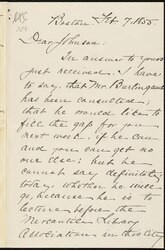 Boston Feb 7, 1855.
Dear Johnson:
In answer to yours
just received, I have
to say, that Mr Burlingame
has been consulted;
that he would like to
fill the gap for you
next week, if he can
and you can get no
one else; but he
cannot say definitely
today, whether he will
go, because he is to
lecture before the
Mercantile Library
Association in this City